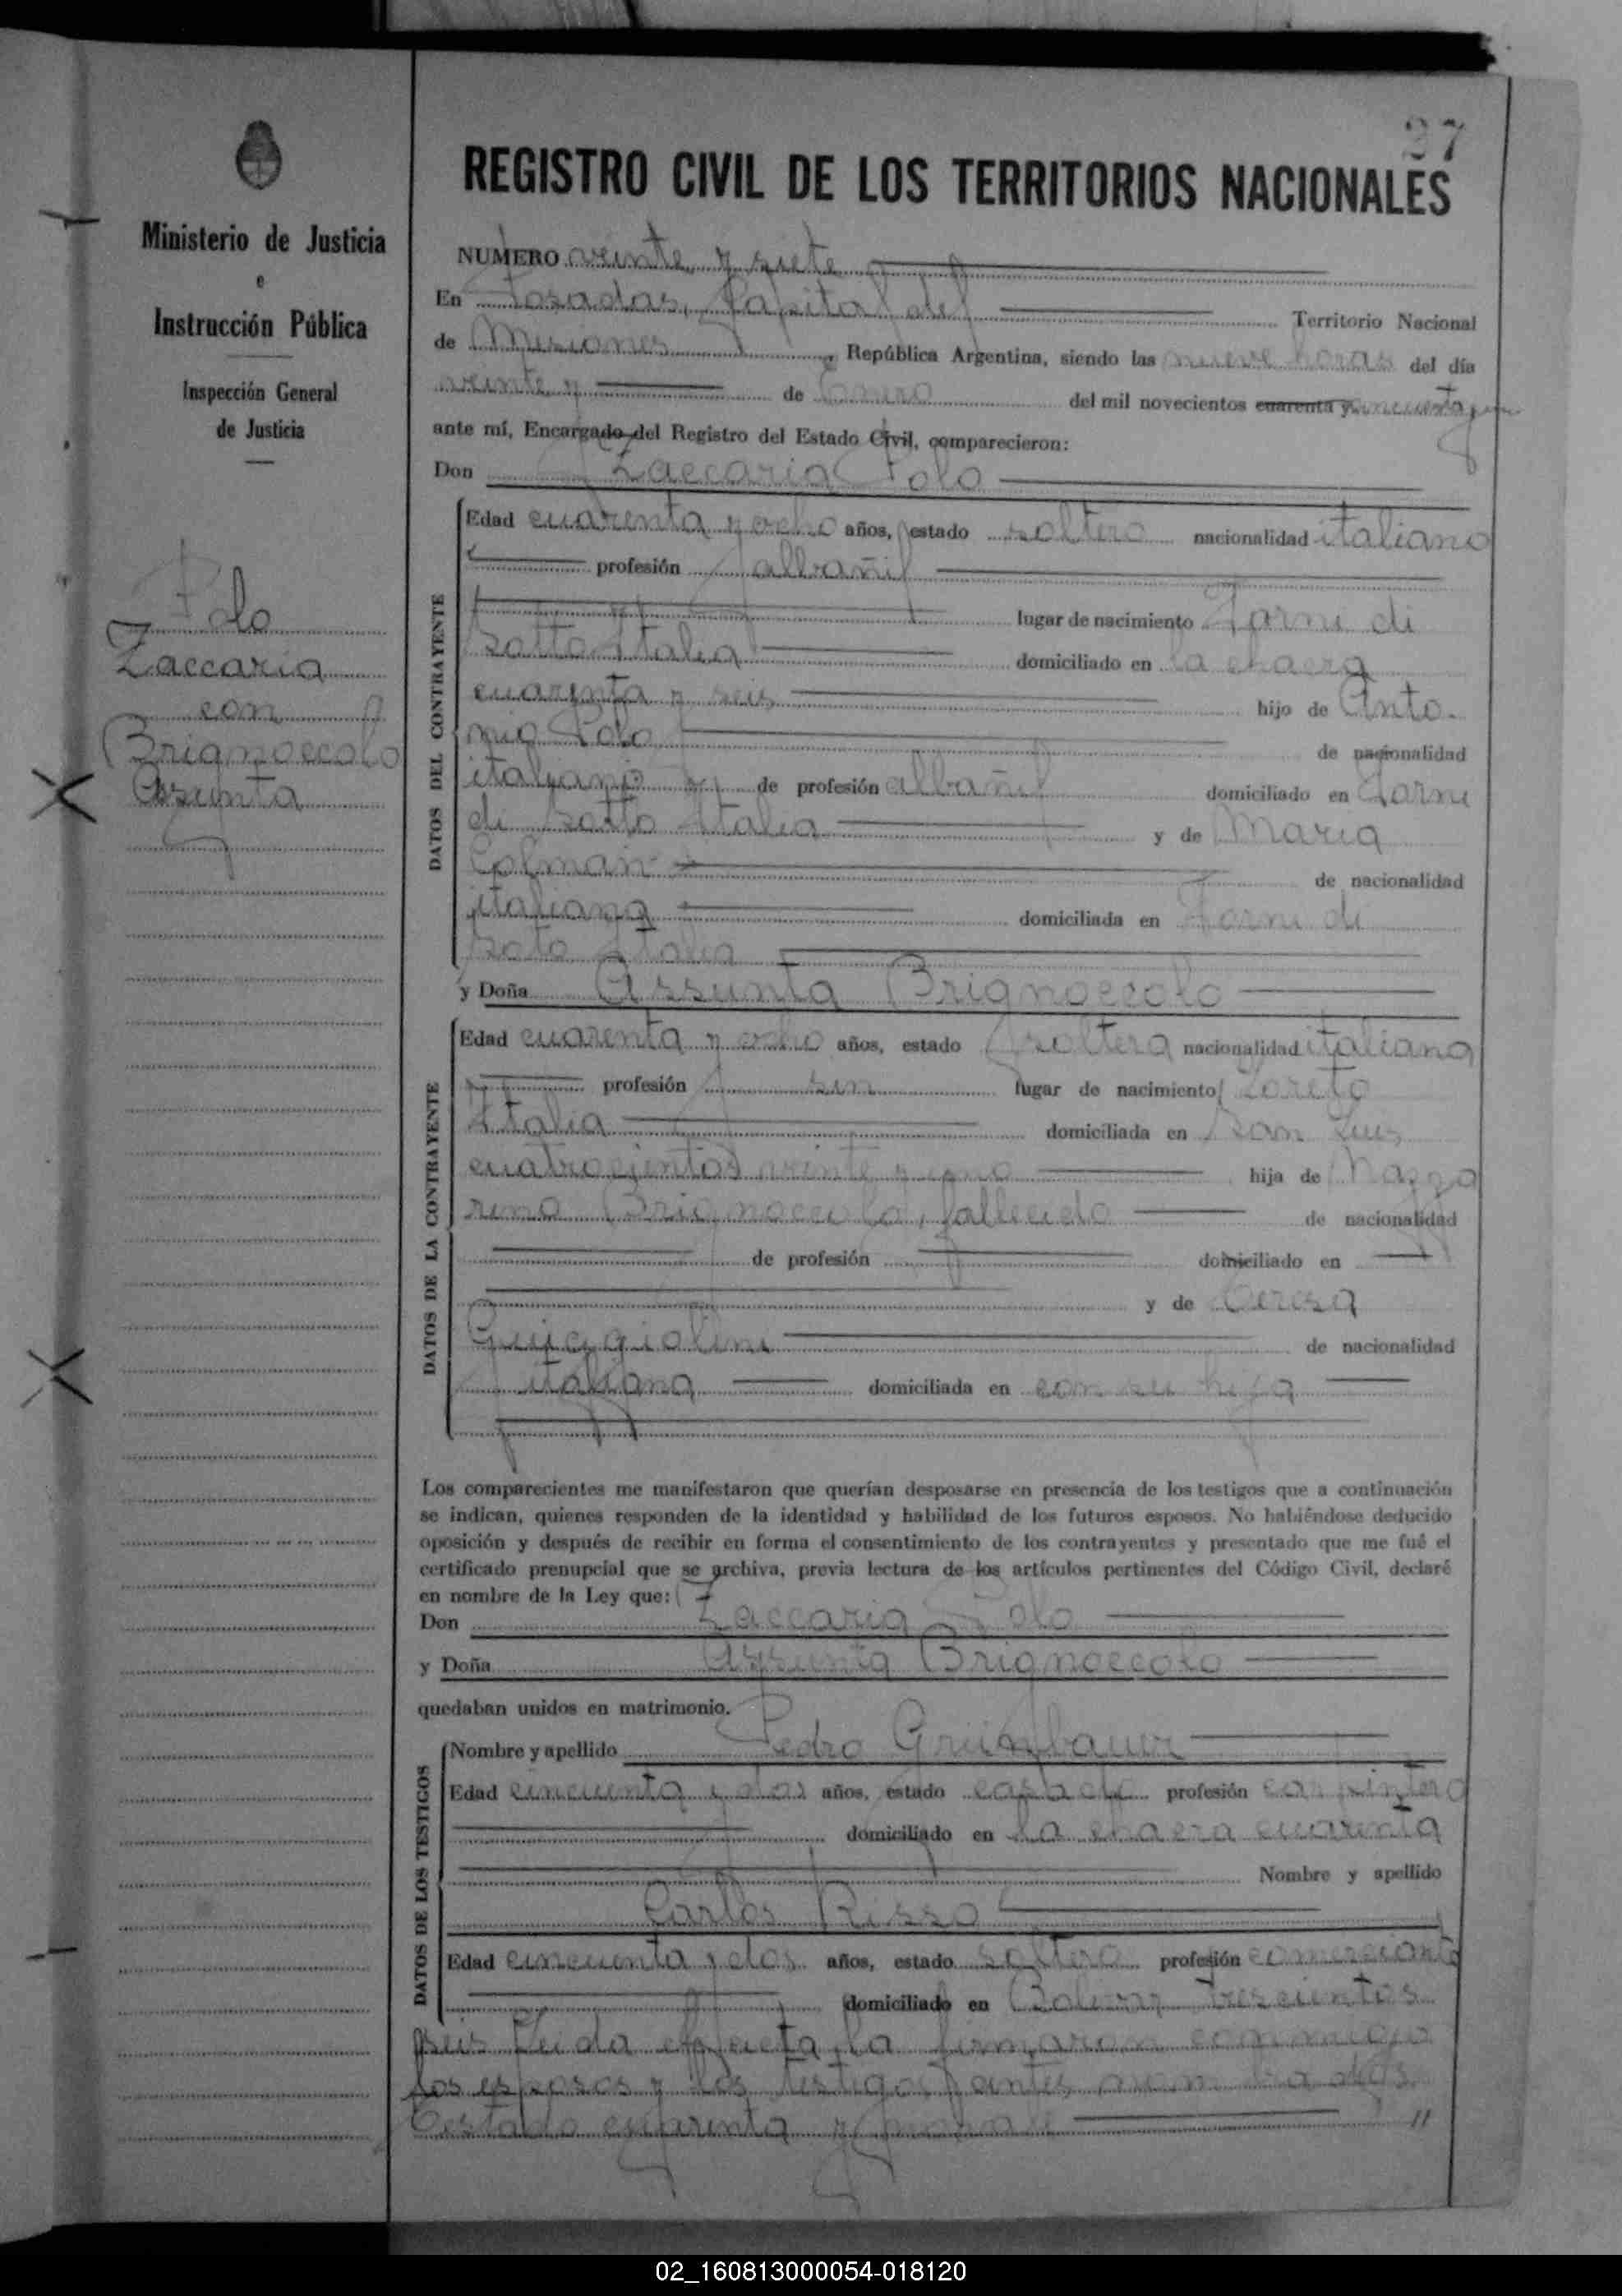 27
REGISTRO CIVIL DE LOS TERRITORIOS NACIONALES
Ministerio de Justicia
e
Instrucción Pública
Inspección General
de Justicia
Polo
Zaccaria
con
Brignoccolo
Asunta
NUMERO veinte y siete
En Posadas, Capital del Territorio Nacional
de Misiones, República Argentina, siendo las nueve horas del día
veinte y de Enero del mil novecientos cuarenta y cincuenta y un
ante mí, Encargado del Registro del Estado Civil, comparecieron:
Don Zaccaria Polo
DATOS DEL CONTRAYENTE
Edad cuarenta y ocho años, estado soltero nacionalidad italiano
profesión albañil
lugar de nacimiento Forni di
Sotto Italia domiciliado en la chacra
cuarenta y seis hijo de Anto-
nio Polo de nacionalidad
italiano de profesión albañil domiciliado en Forni
di Sotto Italia y de Maria
Colman de nacionalidad
italiana domiciliada en Forni di
Soto Italia
y Doña Assunta Brignoccolo
DATOS DE LA CONTRAYENTE
Edad cuarenta y ocho años, estado soltera nacionalidad italiana
profesión sin lugar de nacimiento Loreto
Italia domiciliada en San Luis
cuatrocientos veinte y uno hija de Nazza
reno Brignoccolo, fallecido de nacionalidad
de profesión domiciliado en
y de Teresa
de nacionalidad
italiana domiciliada en con su hija
Los comparecientes me manifestaron que querían desposarse en presencia de los testigos que a continuación
se indican, quienes responden de la identidad y habilidad de los futuros esposos. No habiéndose deducido
oposición y después de recibir en forma el consentimiento de los contrayentes y presentado que me fué el
certificado prenupcial que se archiva, previa lectura de los artículos pertinentes del Código Civil, declaré
en nombre de la Ley que:
Don Zaccaria Polo
y Doña Assunta Brignoccolo
quedaban unidos en matrimonio.
DATOS DE LOS TESTIGOS
Nombre y apellido Pedro Grünbauer
Edad cincuenta y dos años, estado casado profesión carpintero
domiciliado en la chacra cuarenta
Nombre y apellido
Carlos Risso
Edad cincuenta y dos años, estado soltero profesión comerciante
domiciliado en Bolivar trescientos
seis Leida el acta la firmaron conmigo
los esposos y los testigos antes nombrados
Testado cuarenta y
02_160813000054-018120